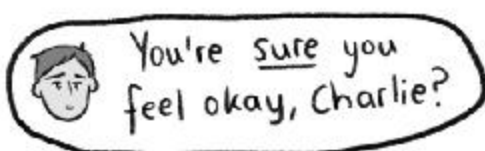 You're sure you
feel okay, Charlie?